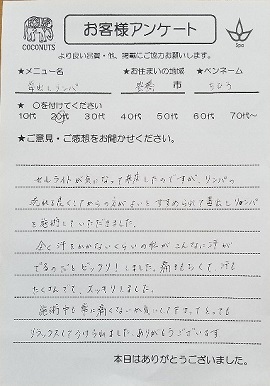 COCONUTS
お客様アンケート
Spa
より良い品質・他、掲載にご協力お願いします。
★メニュー名 ★お住まいの地域 ★ペンネーム
毒出しリンパ 市 ちひろ
★ 〇を付けてください
10代 20代 30代 40代 50代 60代 70代~
★ご意見・ご感想をお聞かせください。
セルライトが気になって来店したのですが、リンパの
流れを良くしてからの方がよいとすすめられて毒出しリンパ
を施術していただきました。
全く汗をかかないくらいの私がこんなに汗が
でるのだとビックリ!しました。痛さもなくて、汗も
たくさんでて、スッキリしました。
施術中も常に痛くないか気にして下さって、とっても
リラックスしてうけられました。ありがとうございます
本日はありがとうございました。